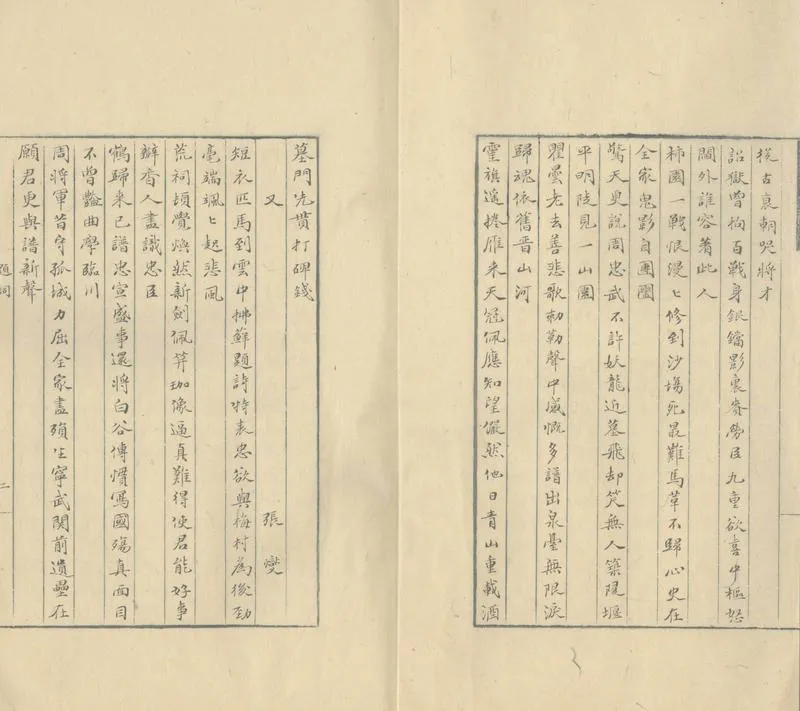 從古衰朝哭將才
詔獄曾拘百戰身銀鐺影裏奪勞臣九重欲喜中樞怒
閫外誰容着此人
柿園一戰恨漫〻修到沙場死最難馬革不歸心史在
全家鬼影自團圞
驚天更說周忠武不許妖龍近墓飛却笑無人築隄堰
平明陡見一山圍
瞿曇老去善悲歌勅勒聲中感慨多譜出泉臺無限淚
歸魂依舊晉山河
靈旗遙捲雁来天冠佩應知望儼然他日青山重載酒
墓門先貰打碑錢
又 張燮
短衣匹馬到雲中拂蘚題詩特表忠欲與梅村爲後勁
毫端颯〻起悲風
荒祠頓覺煥然新劍佩笄珈像逼真難得使君能好事
瓣香人盡識忠臣
鶴歸来已譜忠宣盛事還將白谷傳慣寫國殤真面目
不曾豔曲學臨川
周將軍昔守孤城力屈全家盡殞生寧武関前遺壘在
願君更與譜新聲
詞 二